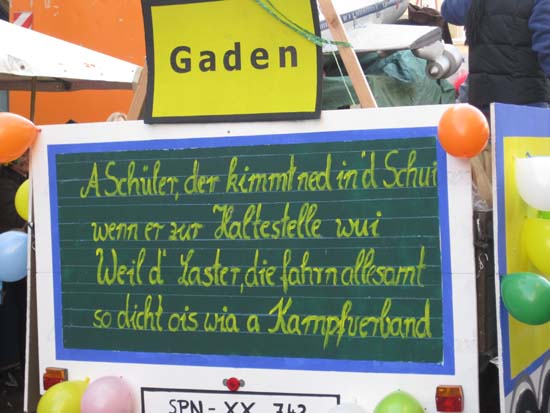 Gaden
A Schüler, der kimmt ned in'd Schui
wenn er zur Haltestelle wui
Weil d' Laster, die fahrn allesamt
so dicht ois wia a Kampfverband
SPN-XX 742